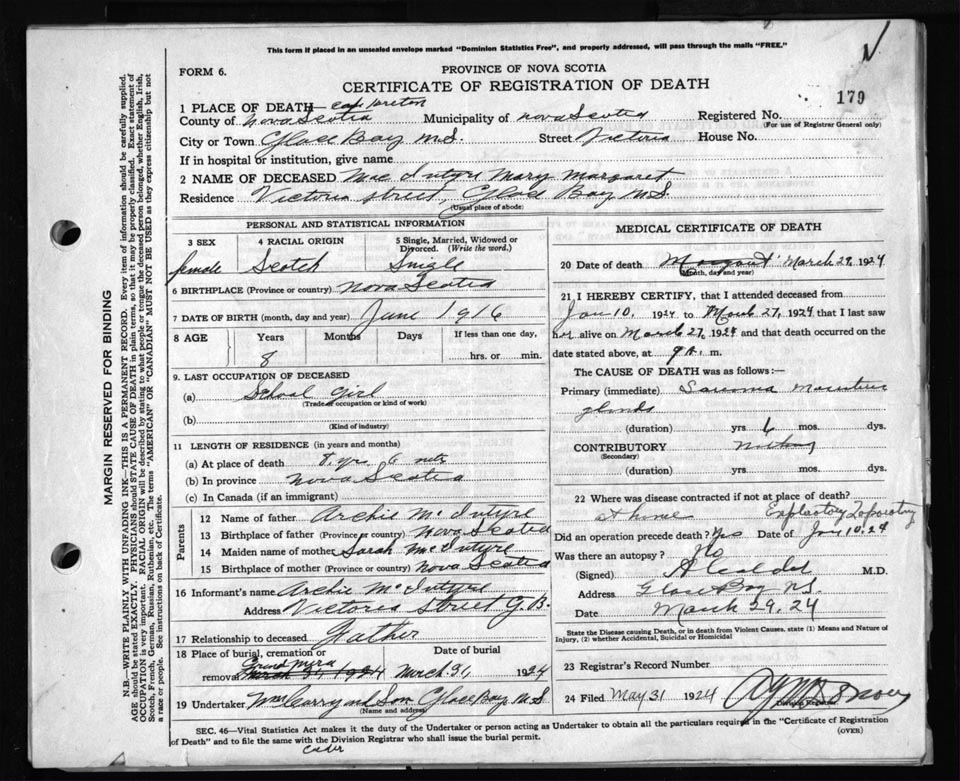 This form if placed in an unsealed envelope marked "Dominion Statistics Free", and properly addressed, will pass through the mails "FREE."
FORM 6.
PROVINCE OF NOVA SCOTIA
CERTIFICATE OF REGISTRATION OF DEATH
179
1 PLACE OF DEATH— Cape Breton
County of Nova Scotia Municipality of Nova Scotia Registered No.
(For use of Registrar General only)
City or Town Glace Bay N.S. Street Victoria House No.
If in hospital or institution, give name
2 NAME OF DECEASED Mac Intyre Mary Margaret
Residence Victoria street, Glace Bay, N.S.
(Usual place of abode)
PERSONAL AND STATISTICAL INFORMATION
3 SEX 4 RACIAL ORIGIN 5 Single, Married, Widowed or Divorced. (Write the word.)
female Scotch Single
6 BIRTHPLACE (Province or country) Nova Scotia
7 DATE OF BIRTH (month, day and year) June 1916
8 AGE Years Months Days If less than one day,
8 hrs. or min.
9. LAST OCCUPATION OF DECEASED
(a) School girl
(Trade, occupation or kind of work)
(b)
(Kind of industry)
11 LENGTH OF RESIDENCE (in years and months)
(a) At place of death 8 yrs 6
(b) In province Nova Scotia
(c) In Canada (if an immigrant)
Parents
12 Name of father Archie McIntyre
13 Birthplace of father (Province or country) Nova Scotia
14 Maiden name of mother Sarah McIntyre
15 Birthplace of mother (Province or country) Nova Scotia
16 Informant's name Archie McIntyre
Address Victoria Street G.B.
17 Relationship to deceased Father
18 Place of burial, cremation or Date of burial
Grand Mira
removal March 31 1924 March 31, 1924
19 Undertaker Wm Curry and Son Glace Bay N.S
(Name and address)
MEDICAL CERTIFICATE OF DEATH
20 Date of death March 29, 1924
(Month, day and year)
21 I HEREBY CERTIFY, that I attended deceased from
Jan 10, 1924 to March 27, 1924 that I last saw
her alive on March 27, 1924 and that death occurred on
date stated above, at 9 A. m.
The CAUSE OF DEATH was as follows:—
Primary (immediate) Sarcoma
glands
(duration) yrs 6 mos. dys.
CONTRIBUTORY nothing
(Secondary)
(duration) yrs. mos. dys.
22 Where was disease contracted if not at place of death?
at home Exploratory
Did an operation precede death? Yes Date of Jan 10, 24
Was there an autopsy? No
(Signed) M.D.
Address Glace Bay N.S.
Date March 29, 24
State the Disease causing Death, or in death from Violent Causes, state (1) Means and Nature of Injury, (2) whether Accidental, Suicidal or Homicidal
23 Registrar's Record Number
24 Filed May 31 1924
Division Registrar
SEC. 46—Vital Statistics Act makes it the duty of the Undertaker or person acting as Undertaker to obtain all the particulars required in the "Certificate of Registration
of Death" and to file the same with the Division Registrar who shall issue the burial permit.
(OVER)
MARGIN RESERVED FOR BINDING
N.B.—WRITE PLAINLY WITH UNFADING INK—THIS IS A PERMANENT RECORD. Every item of information should be carefully supplied.
AGE should be stated EXACTLY. PHYSICIANS should STATE CAUSE OF DEATH in plain terms, so that it may be properly classified. Exact statement of
OCCUPATION is very important. RACIAL ORIGIN will be described by stating to what people or tongue the deceased person belonged, whether English, Irish,
Scotch, French, German, Russian, Ruthenian, etc. The terms "AMERICAN" or "CANADIAN" MUST NOT BE USED as they express citizenship but not
a race or people. See instructions on back of Certificate.